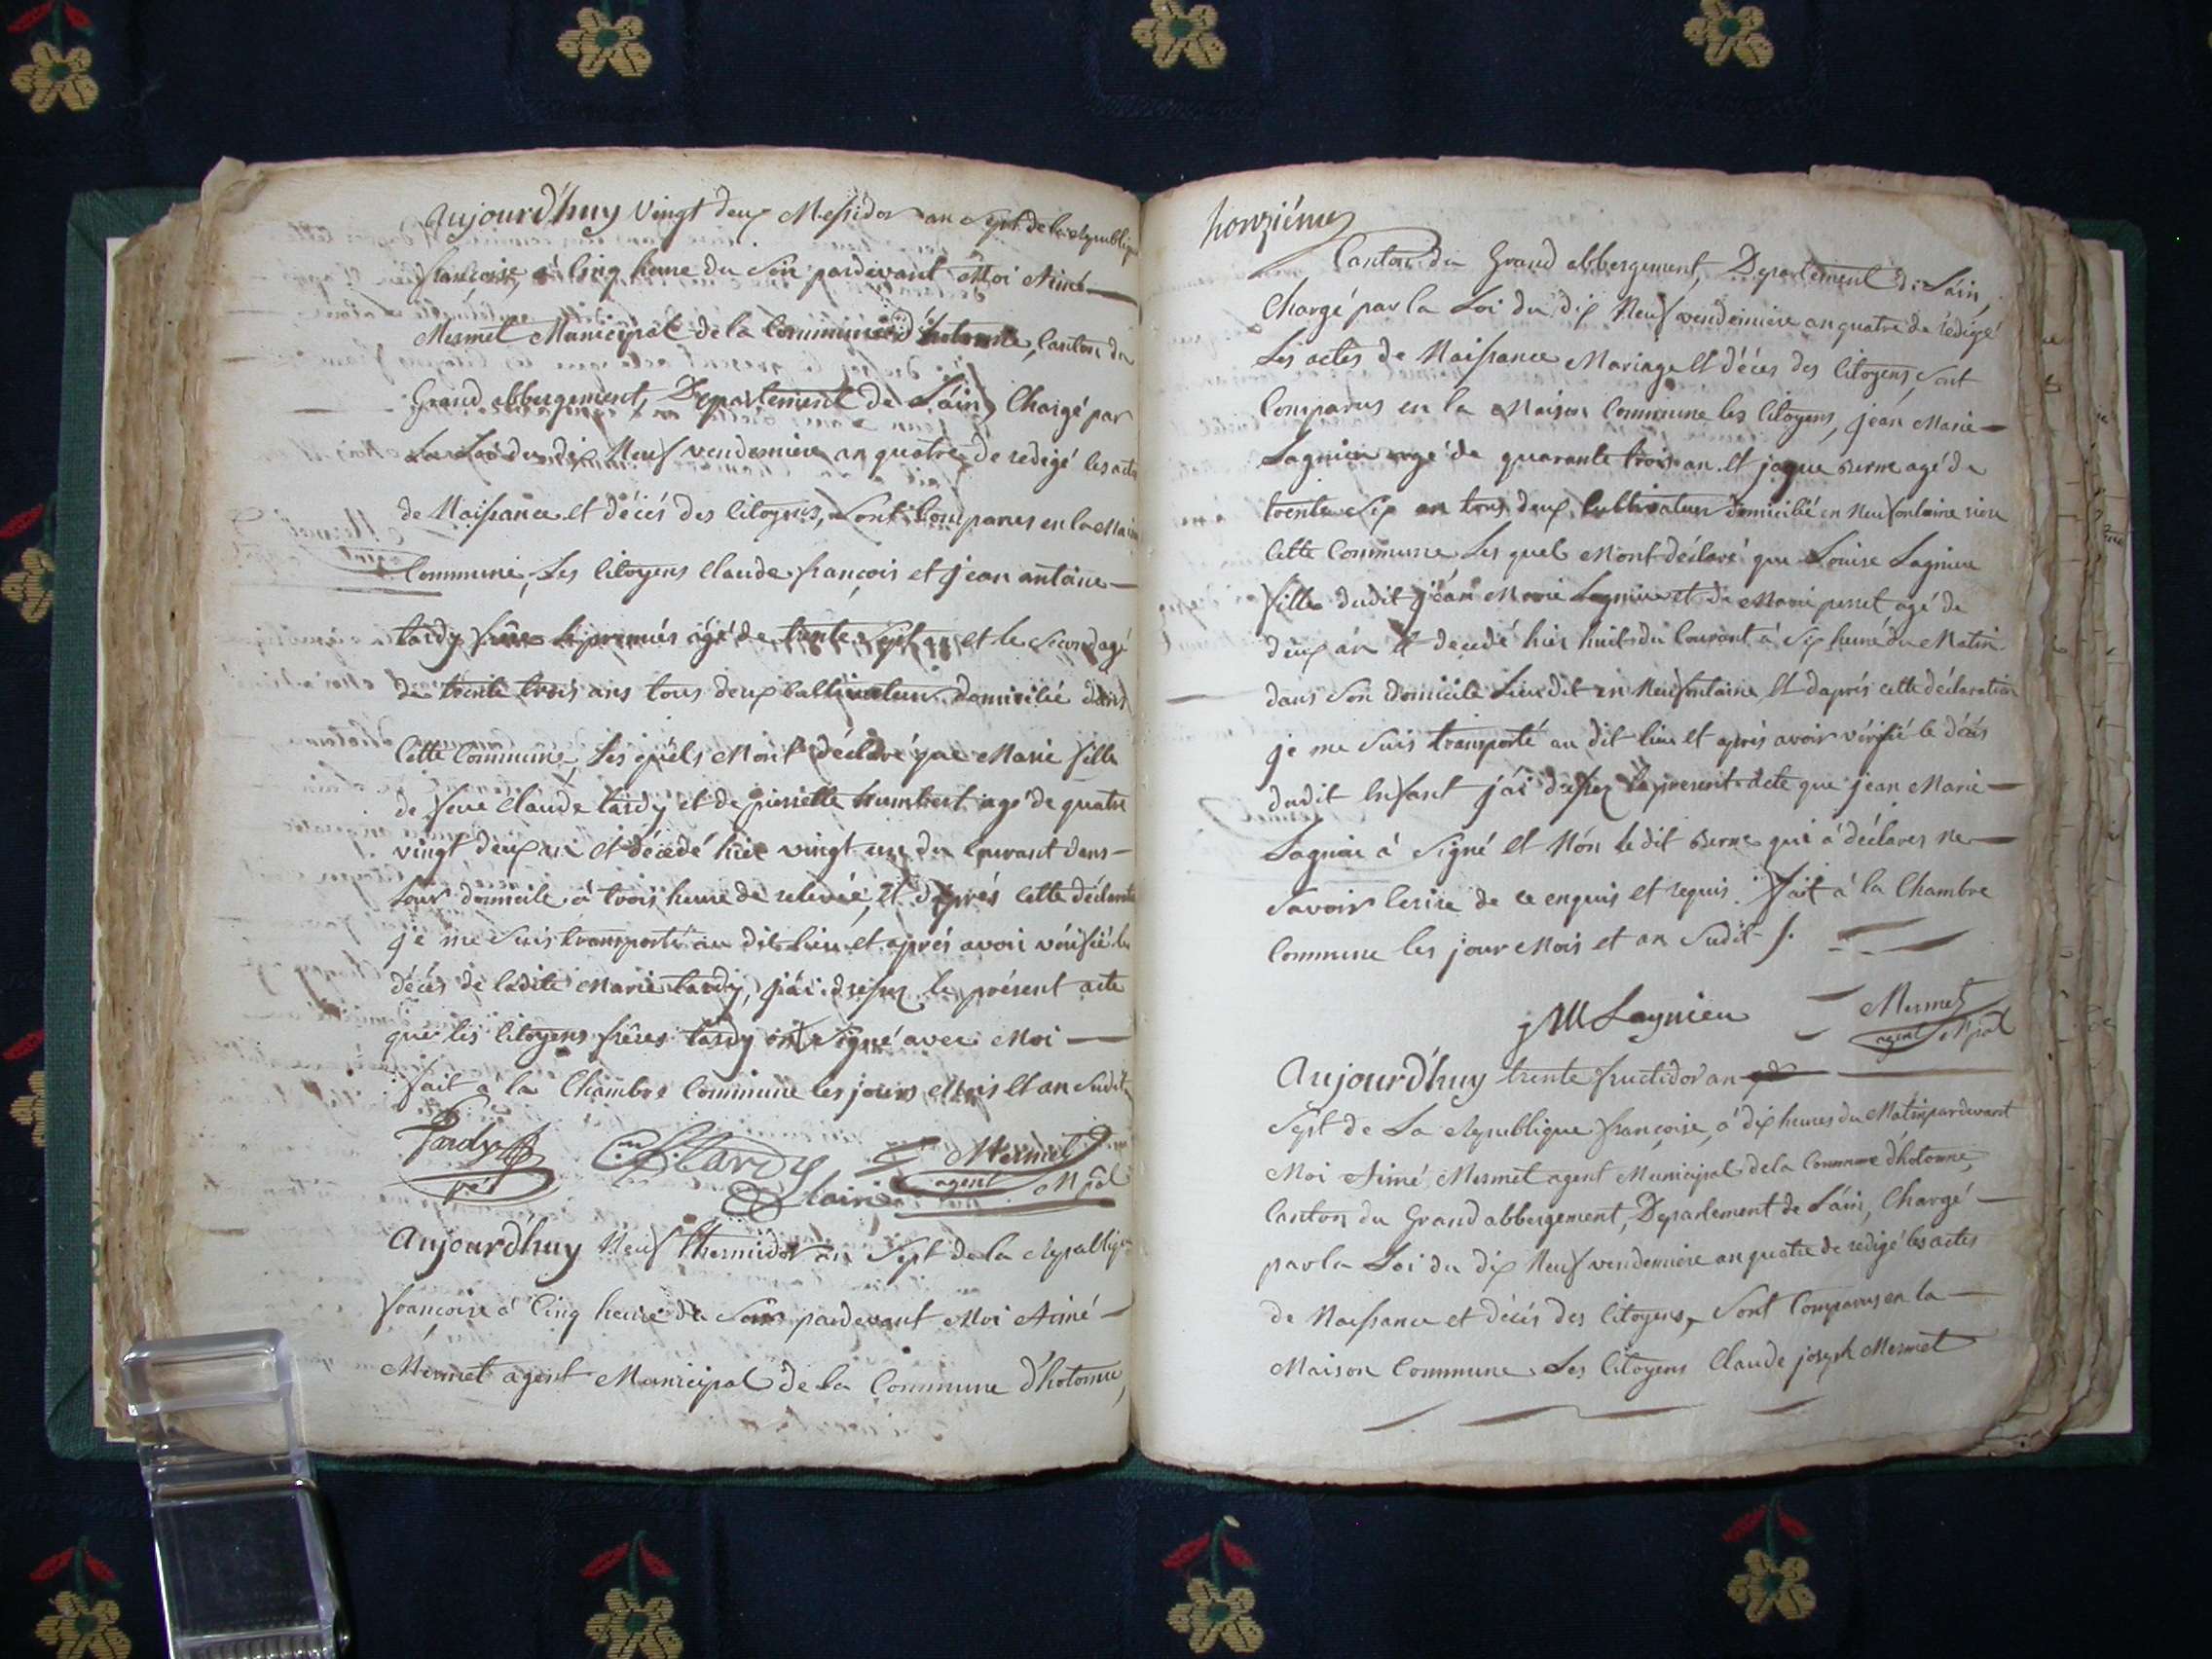 aujourd'huy vingt deux Messidor an sept de la republique
françoise, à cinq heure du soir pardevant Moi Aimé
Mermet Municipal de la Commune d'hotonne, Canton du
Grand abbergement, Departement de Láin, Chargé par
La Loi du dix Neuf vendemiere an quatre de redigé les actes
de Naissance et décés des Citoyens, sont Comparus en la Maison
Commune, Les Citoyens Claude françois et jean antoine
tardy frere le premiér âgé de trente sept an et le second agé
de trente trois ans tous deux Cultivateur domicilié dans
Cette Commune, Les quéls Mont déclaré que Marie fille
de feue Claude tardy et de pierrette humbert agé de quatre
vingt deux an et décédé hiér vingt un du Courant dans
Leur domicile à trois heure de relevée, et d'aprés Cette déclaration
je me suis transporté au dit Lieu et aprés avoir vérifié le
décés de ladite Marie tardy, j'ái dressez le présent acte
que les Citoyens fréres tardy ont signé avec Moi
fait à la Chambre Commune les jours Mois et an sudit
Tardy C. f. tardy Mermet
agent M pal
Aujourd'huy Neuf thermidor an sept de la republique
françoise à Cinq heure du soir pardevant Moi Aimé
Mermet agent Municipal de la Commune d'hotonne,
honziéme
Canton du Grand abbergement, Departement de Láin,
Chargé par la Loi du dix Neuf vendemiere an quatre de rédigé
Les actes de Naissance Mariage et décés des Citoyens, sont
Comparus en la Maison Commune les Citoyens, jean Marie
Lagnieu agé de quarante trois an et jaque Berne agé de
trente six an tous deux Cultivateur domicilié en Neufontaine rière
Cette Commune, Les quel Mont déclaré que Louise Lagnieu
fille dudit jéan Marie Lagnieu et de Marie perret agé de
deux án et decedé hier huit du Courant à six heure du Matin
dans son domicile Lieu dit en Neufontaine, et daprés cette déclaration
je me suis transporté au dit lieu et aprés avoir vérifié le décés
dudit Enfant j'ái dressez le present acte que jean Marie
Lagnieu à signé et Nón le dit Berne qui à déclarer ne
savoir lerire de ce enquis et requis. fait à la Chambre
Commune les jour Mois et an sudit /.
j M Lagnieu Mermet
agent M pal
Aujourd'huy trente fructidor an
sept de La republique françoise, à dix heures du Matin pardevant
Moi Aimé Mermet agent Municipal de la Commune d'hotonne,
Canton du Grand abbergement, Departement de Láin, Chargé
par la Loi du dix Neuf vendemiere an quatre de redigé les actes
de Naissance et décés des Citoyens, sont Comparus en la
Maison Commune Les Citoyens Claude joseph Mermet